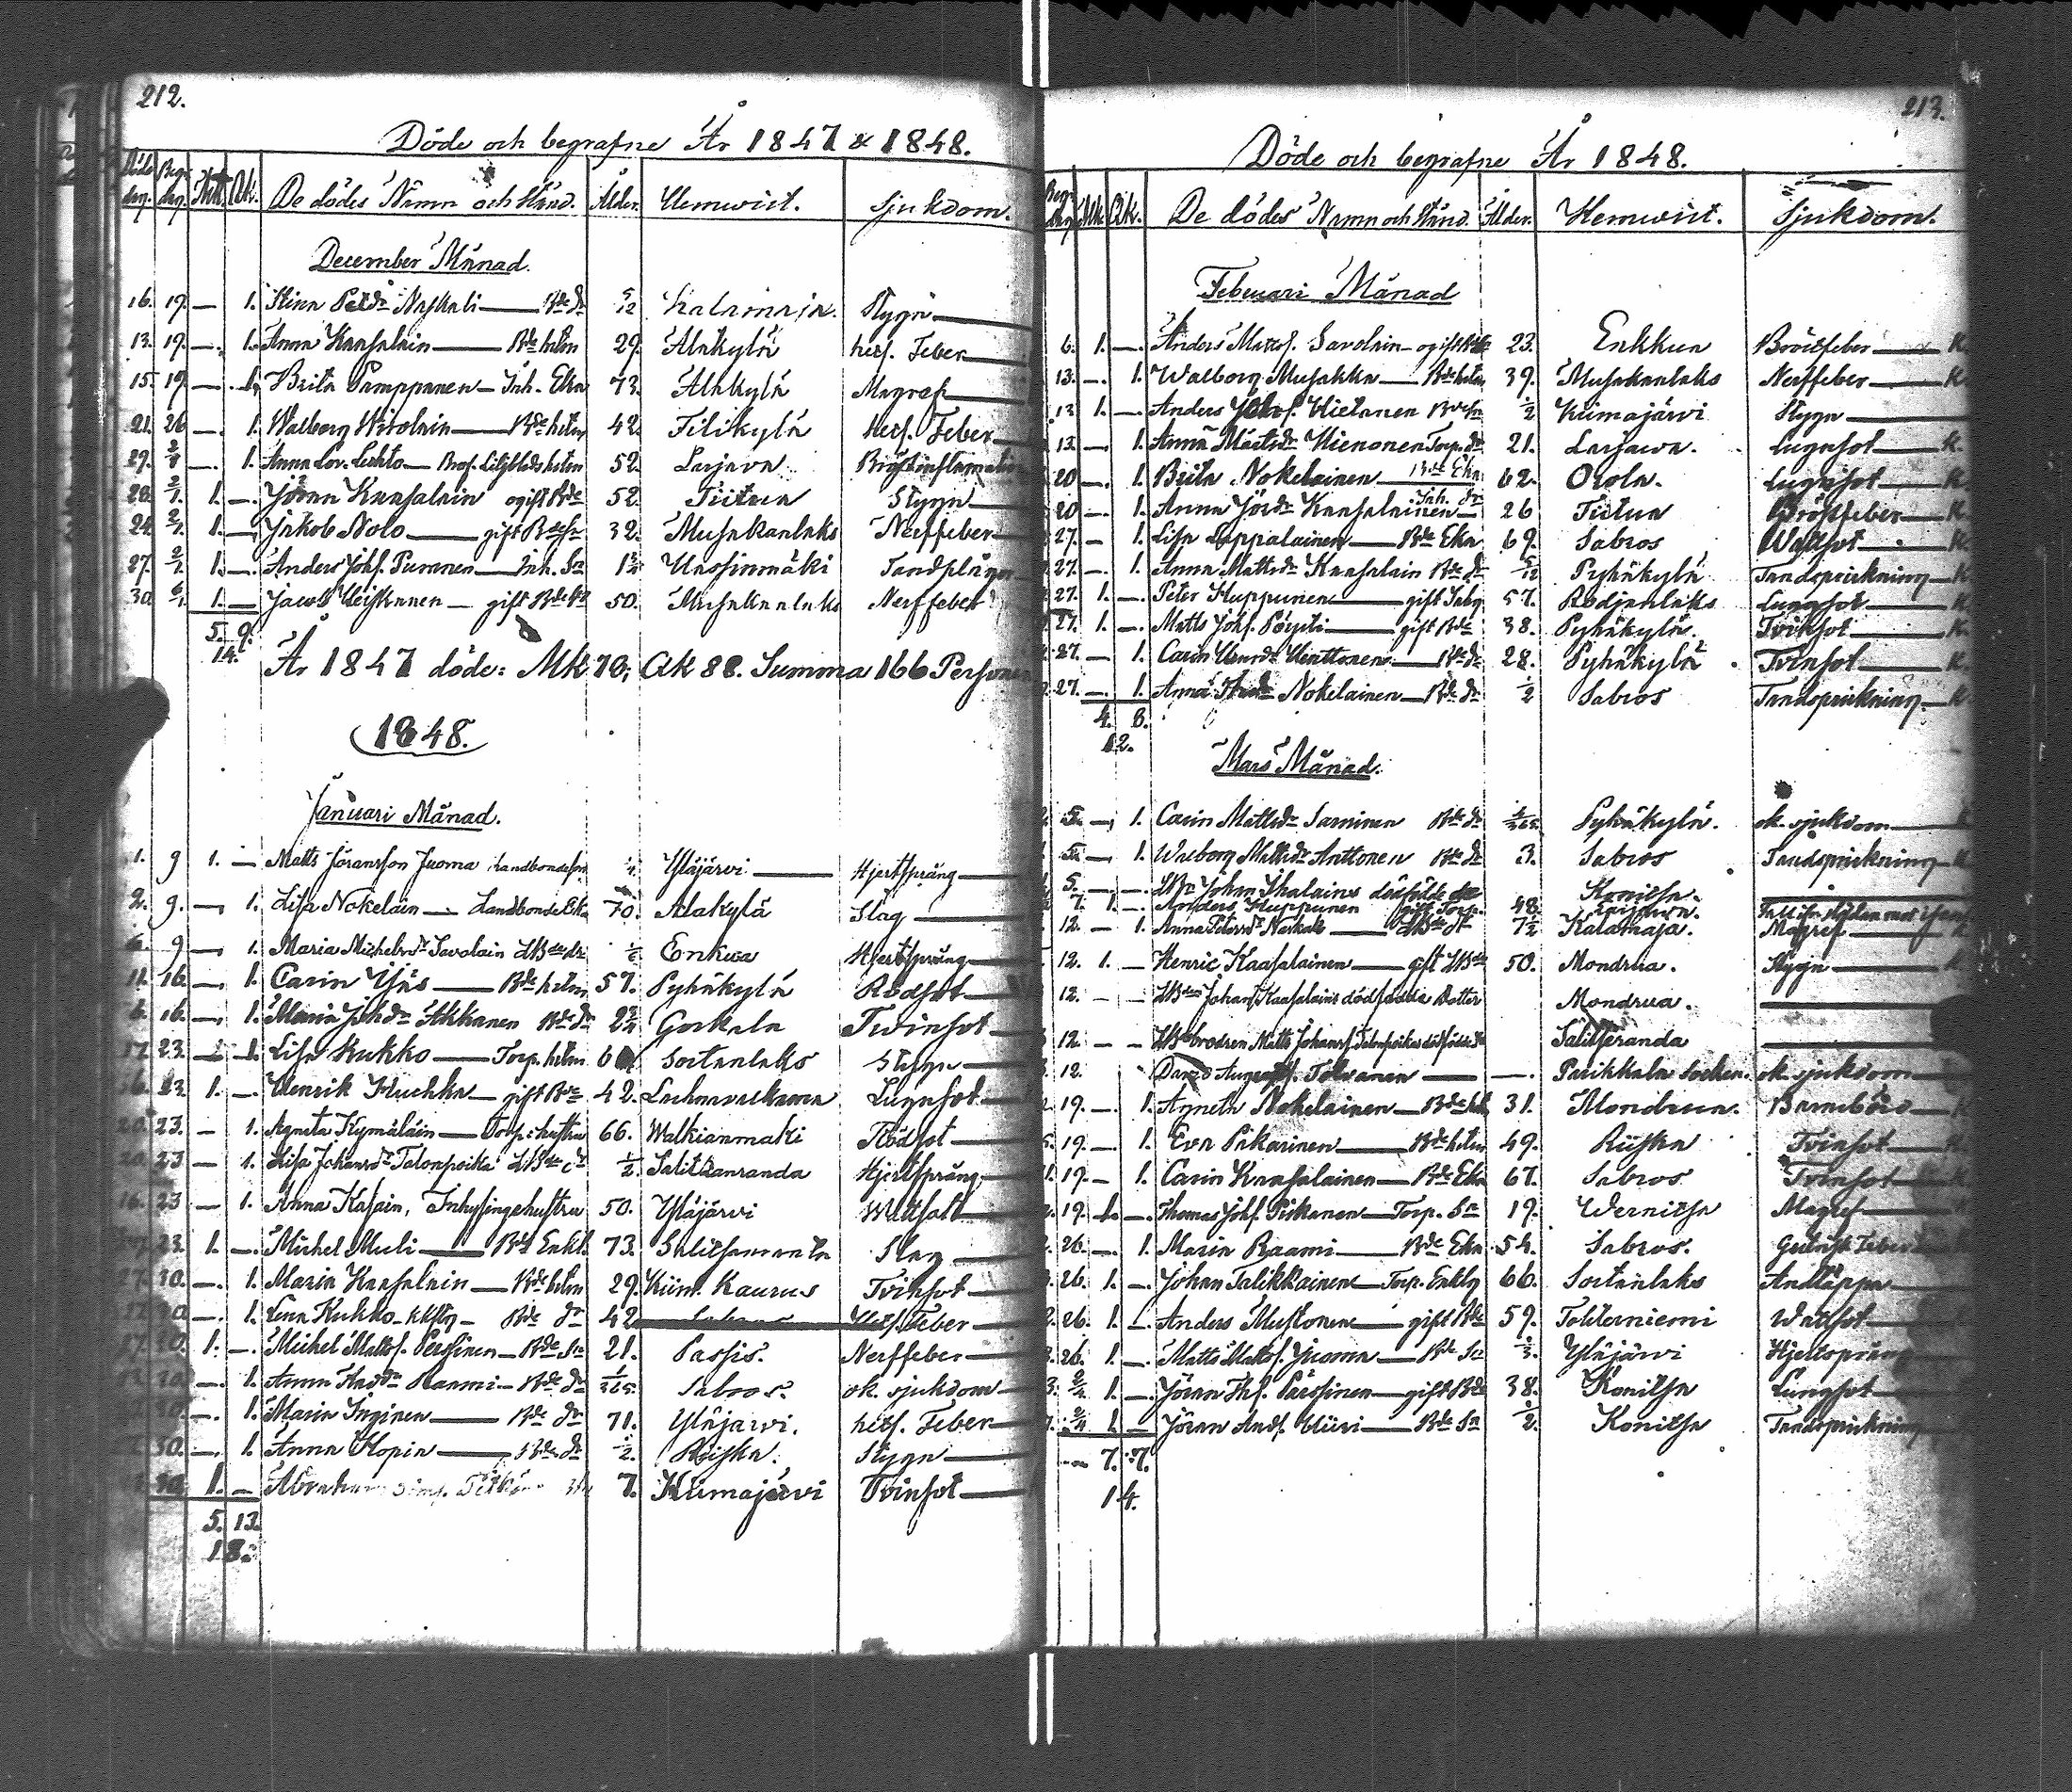 212.
Döde och begrafne År 1847 & 1848.
Döde dag. Begr. dag. Mk. Qk. De dödes Namn och Stånd. Ålder. Hemwist. Sjukdom.
December Månad.
16. 19. — 1. Stina Petdr Naskali — Bde dr 5/12 Kalamaja. Stygn
13. 19. — 1. Anna Kaasalain — Bde hstn 29. Alakylä hets. Feber
15. 19. — 1. Brita Pamppanen — Inh. Eka 73. Alakylä Magref
21. 26 — 1. Walborg — Bde hstn 42. Tilikylä Hets. Feber
29. 2/1 — 1. Anna Lov. Lehto — hstrn 52. Larjava Bröstinflamation
28. 2/1. 1. — Jöran Kaasalain ogift Bde 52. Tiitua Stygn
24. 2/1. 1. — Jakob Nolo — gift Bdesn 32. Musakanlaks Nerffeber
27. 2/1. 1. — Anders Johs. Purmonen — Inh. Sn 1 1/2 Uassinmäki Tandplågor
30. 6/1. 1. — Jacob Heiskanen — gift Bde 50. Musakanlaks Nerffeber
5. 9.
14.
År 1847 döde: Mk 70; Qk 88. Summa 166 Personer
1848.
Januari Månad.
1. 9 1. — Matts Göransson Juoma Landbondeson Yläjärvi — Hjertspräng
2. 9. — 1. Lisa Nokelain — Landbonde Eka 70. Alakylä Slag
6. 9 — 1. Maria Michelsdr Savolain LBde dr Enkua Hjertspräng
11. 16. — 1. Carin Ijäs — Bde hstrn 57. Pyhäkylä Rödsot
6. 16. — 1. Maria Johdr Akkanen Bde dr 2 3/4 Goskala Tvinsot
17. 23. — 1. Lisa Kukko — Torp. hstrn Soitanlaks Stygn
16. 23. 1. — Henrik Huchka — gift Bde 42. Lahnavalkama Lugnsot
20. 23. — 1. Agneta Kymäläin — Torp: hustru 66. Walkianmäki Rödsot
20. 23 — 1. Lisa Johansdr Talonpoika LBde dr 1/2 Salitsanranda Hjertspräng
16. 23 — 1. Anna Kasain, Inhysingehustru 50. Yläjärvi Wattsott
23. 1. — Michel Muli — Bde Enkl. 73. Salitsanranta Slag
27. 30. — 1. Maria Kaasalain — Bde hstrn 29. Kiim. Kaurus Tvinsot
17. 30. — 1. Lena Kukko — Bde dr 42 Hets. Feber
17. 30. 1. — Michel Matts. Perssinen — Bde Sn 21. Passis. Nerffeber
— 1. Anna Raami — Bde dr 1/365 Sabros. ok. sjukdom
— 1. Maria Inginen — Bde dr 71. Yläjarvi. hets. Feber
30. — 1. Anna Hopia — Bde dr 1/2. Riiska. Stygn
1. — Abraham 7. Kiimajärvi Tvinsot
5. 13.
18.
213.
Döde och begrafne År 1848.
Begr. dag. Mk. Qk. De dödes Namn och Stånd. Ålder. Hemwist. Sjukdom.
Februari Månad
6. 1. — Anders Matts. Savolain — ogift Bde 23. Enkkua Bröstfeber — K.
13. — 1. Walborg Musakka — Bde hstrn 39. Musakanlaks Nerffeber — K.
13 1. — Anders Johs. Hietanen Bdesn 1/2 Kiimajärvi Stygn
13. — 1. Anna Mattsdr Hienonen Torp. dr 21. Larjawa. Lugnsot — K.
20 — 1. Brita Nokelainen — Bde Eka 62. Orola. Lugnsot — K.
20 — 1. Anna Jördr Kaasalainen — Inh. dr 26 Tiitua Bröstfeber — K.
27. — 1. Lisa Lappalainen — Bde Eka 69. Sabros Wattsot — K.
27. — 1. Anna Mattsdr Kaasalain Bde dr 5/12 Pyhäkylä Tandsprickning — K
27. 1. — Peter Huppunen — gift Inhy 57. Rodjanlaks Lungsot — K
27. 1. — Matts Johs. Pöysti — gift Bde 38. Pyhäkylä. Tvinsot — K.
27. — 1. Carin Henrdr Henttonen — Bde dr 28. Pyhäkylä Tvinsot — K.
27. — 1. Anna Nokelainen — Bde dr 1/2 Sabros Tandsprickning — K
4. 8.
12.
Mars Månad.
5. — 1. Carin Mattsdr Sarminen Bde dr 4/365 Pyhäkylä. ok. sjukdom
5. — 1. Walborg Mattsdr Anttonen Bde dr 3. Sabros Tandsprickning
5. — — Johan Ihalains dödfödde Konitsa.
7. 1. — Anders Huppunen gift Torp. 48. Larjawa.
12. — 1. Anna Petersdr Naskali — LBde dr 7 1/2 Kalamaja. Magref
12. 1. — Henric Kaasalainen — gift LBde 50. Mondrua. Stygn
12. — — LBden Johan Kaasalains dödfödda Dotter Mondrua.
12 — — LBbrodren Matts Johanss Talonpoikas dödfödde Salitseranda
12. David August. Tolvanen — —. Parikkala Socken. ok. sjukdom
19. — 1. Agneth Nokelainen — Bde hst 31. Mondrua. Barnsbörd
19. — 1. Eva Pakarinen — Bde hstrn 49. Riiska Tvinsot
19. — 1. Carin Kaasalainen — Bde Eka 67. Sabros Tvinsot
19. 1. — Thomas Johs. Pitkanen — Torp. Sn 19. Wernitsa Magref
26. — 1. Maria Raami — Bde Eka 54. Sabros. Feber
26. 1. — Johan Talikkainen — Torp. Enklg 66. Soitanlaks Andtäppa
26. 1. — Anders Mustonen — gift Bde 59. Tolterniemi Wattsot
26. 1. — Matts Matts. Juoma — Bde Sn 2/3. Yläjärvi Hjertspräng
2/4 1. — Jöran Parssinen — gift Bde 38. Konitsa Lungsot
2/4 1. — Jöran Ands. Hiiri — Bde Sn 2. Konitsa Tandsprickning
7. 7.
14.